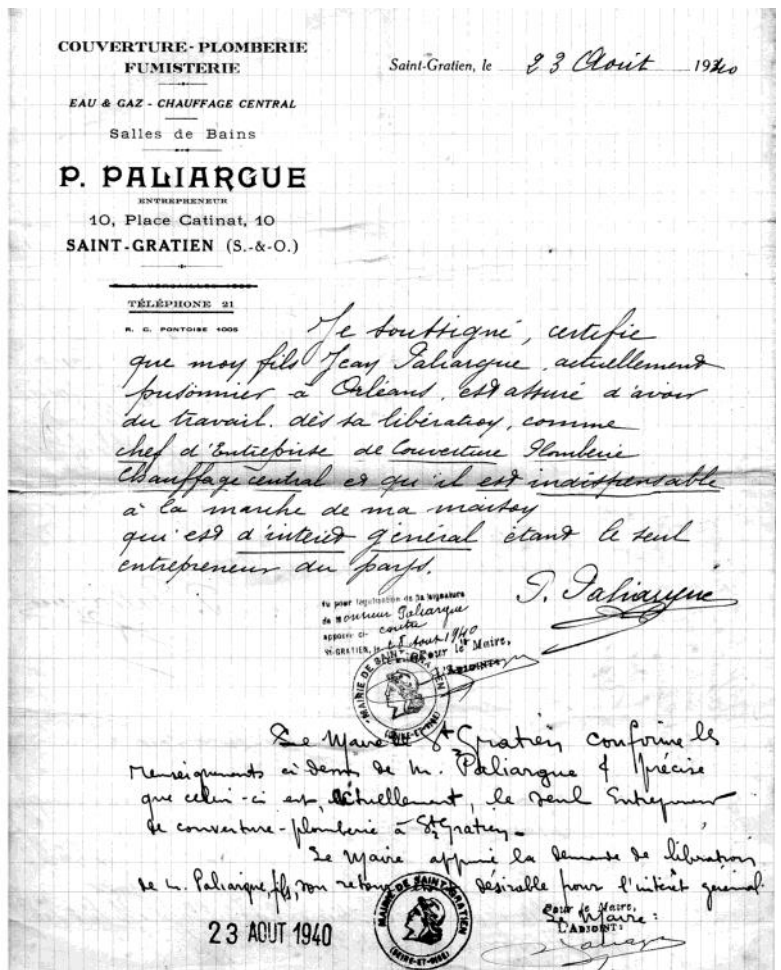 COUVERTURE - PLOMBERIE
FUMISTERIE
EAU & GAZ - CHAUFFAGE CENTRAL
Salles de Bains
P. PALIARGUE
ENTREPRENEUR
10, Place Catinat, 10
SAINT-GRATIEN (S.-&-O.)
TÉLÉPHONE 21
R. C. PONTOISE 1005
Saint-Gratien, le 23 Août 1940
Je soussigné, certifie
que mon fils Jean Paliargue, actuellement
prisonnier à Orléans, est assuré d'avoir
du travail dès sa libération, comme
chef d'Entreprise de Couverture Plomberie
Chauffage central et qu'il est indispensable
à la marche de ma maison
qui est d'intérêt général étant le seul
entrepreneur du pays.
P. Paliargue
Vu pour légalisation de la signature
de Monsieur Paliargue
apposée ci-contre
ST-GRATIEN, le Août 1940
Pour le Maire,
L'ADJOINT:
MAIRIE DE SAINT-GRATIEN
(SEINE-ET-OISE)
Le Maire de St Gratien confirme les
renseignements ci dessus de M. Paliargue & précise
que celui-ci est, actuellement, le seul Entrepreneur
de couverture-plomberie à St Gratien.
Le Maire appuie la demande de libération
de M. Paliargue, fils, son retour désirable pour l'intérêt général.
23 AOUT 1940
MAIRIE DE SAINT-GRATIEN
(SEINE-ET-OISE)
Pour le Maire,
Le Maire:
L'ADJOINT: